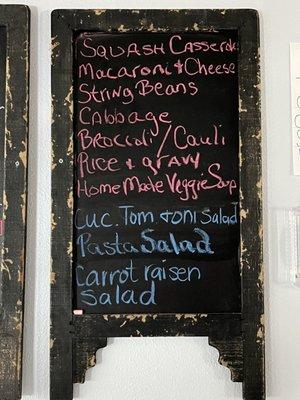 Squash Casserole
Macaroni & Cheese
String Beans
Cabbage
Broccoli / Cauli
Rice & gravy
HomeMade Veggie Soup
Cuc Tom & oni Salad
Pasta Salad
Carrot raisen
Salad